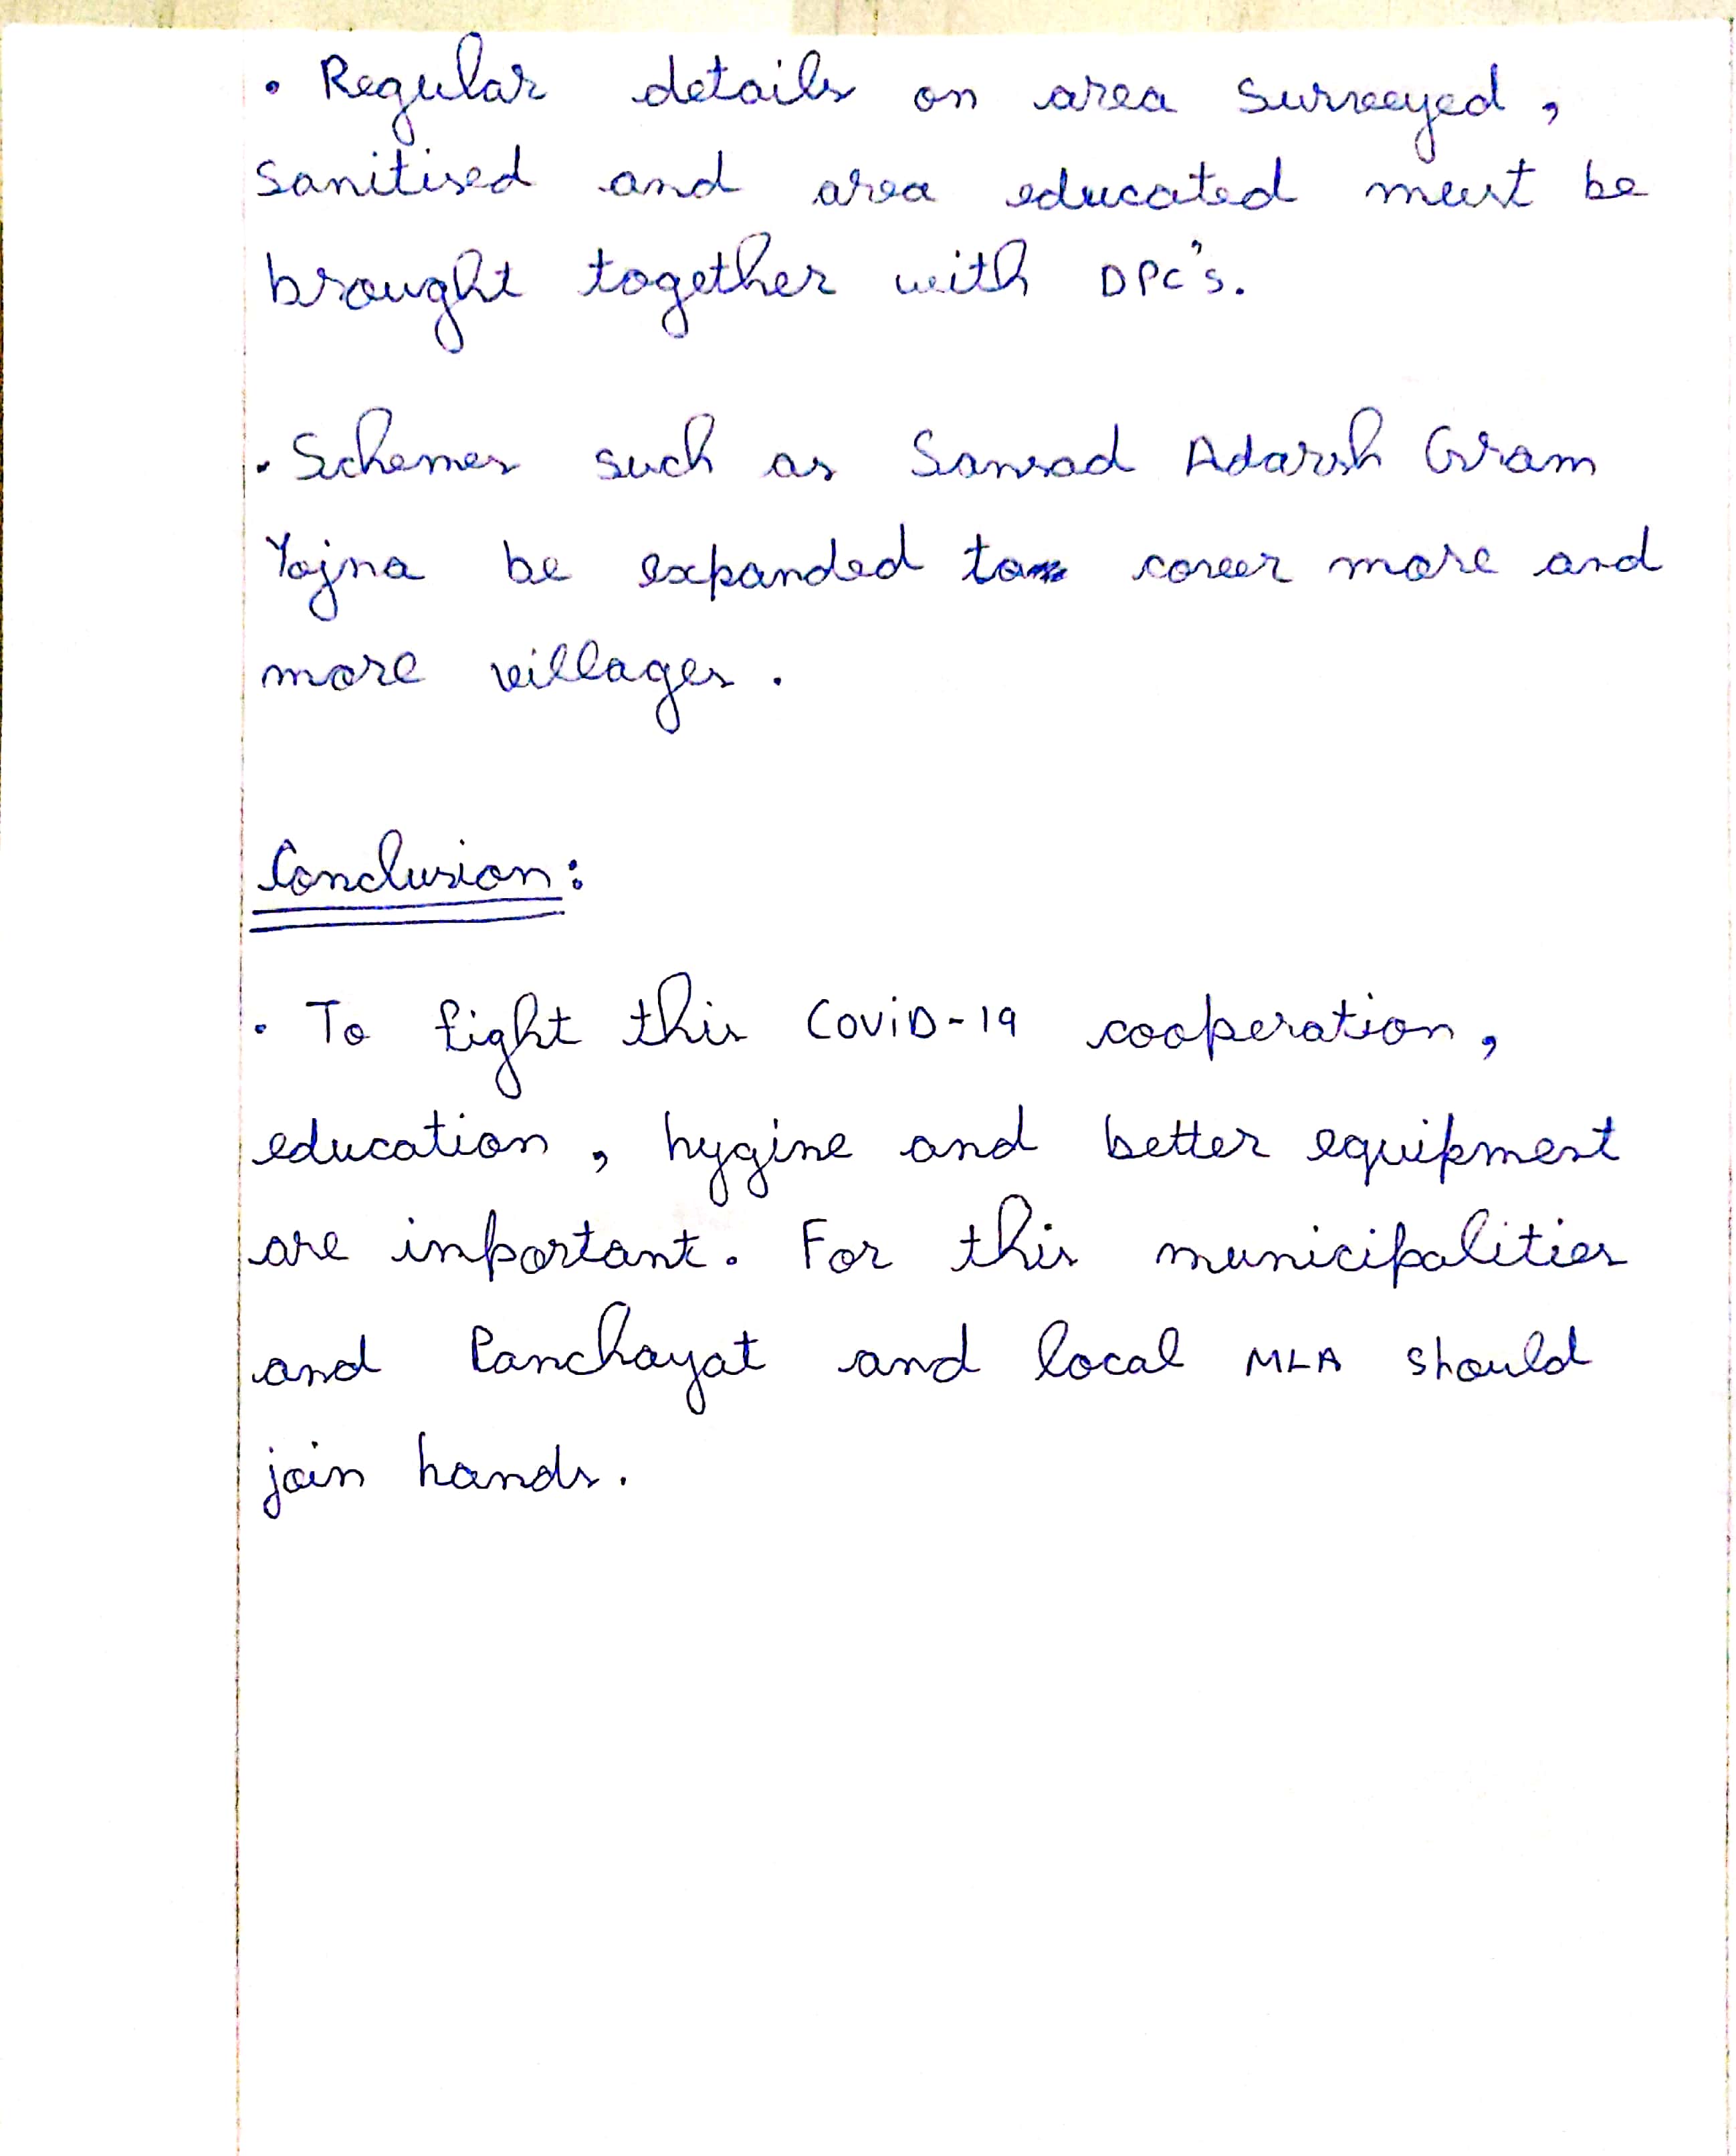 • Regular details on area surveyed,
sanitised and area educated must be
brought together with DPC's.
• Schemes such as Sansad Adarsh Gram
Yojna be expanded to cover more and
more villages.
Conclusion:
• To fight this COVID-19 cooperation,
education, hygine and better equipment
are inportant. For this municipalities
and Panchayat and local MLA should
join hands.